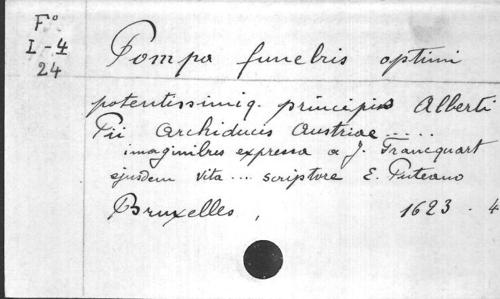 F°
I-4
24
Pompa funebris optimi
potentissimiq. principis Alberti
Pii Archiducis Austriae.....
imaginibus expressa a J. Francquart
ejusdem vita ... scriptore E. Puteano
Bruxelles, 1623. 4